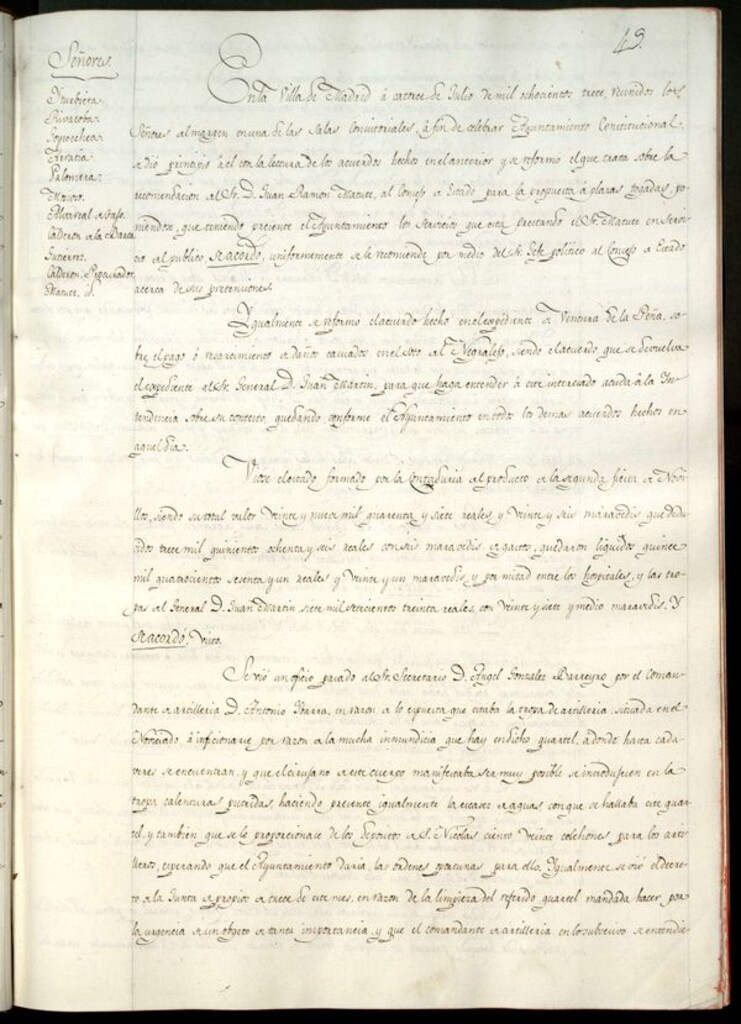 49.
Señores
Yturbieta.
Rivacoba.
Goycochea.
Palomera.
Moroso.
Calderon de la Barca
Gutierrez.
Calderon, Procurador
Matute, id.
En la Villa de Madrid á catorce de Julio de mil ochocientos trece, reunidos los
Señores al margen en una de las Salas Consistoriales, á fin de celebrar Ayuntamiento Constitucional
se dió principio á él con la lectura de los acuerdos hechos en el anterior y se reformo el que trata sobre la
recomendacion al Sr. D. Juan Ramon Matute, al Consejo de Estado para la propuesta á plazas togadas, po-
niendose, que teniendo presente el Ayuntamiento los Servicios que esta prestando el Sr. Matute en Servi-
cio al publico, Se acordó, uniformemente se le recomiende por medio del Sr. Gefe politico al Consejo de Estado
acerca de sus pretensiones.
Ygualmente se reformo el acuerdo hecho en el expediente de Ventura de la Peña, so-
bre el pago ó resarcimiento de daños causados en el soto del Negralejo, siendo el acuerdo, que se devuelva
el expediente al Sr. General D. Juan Martin, para que haga entender á este interesado acuda á la Yn-
tendencia sobre su contexto, quedando conforme el Ayuntamiento en todos los demas acuerdos hechos en
aquel dia.
Viose el estado formado por la Contaduria del producto de la segunda fiesta de Novi-
llos, siendo su total valor Veinte y nueve mil quarenta y siete reales y Veinte y seis maravedis que dedu-
cidos trece mil quinientos ochenta y seis reales con seis maravedis de gastos, quedaron liquidos quince
mil quatrocientos sesenta y un reales y Veinte y un maravedis y por mitad entre los hospitales, y las tro-
pas del General D. Juan Martin siete mil setecientos treinta reales, con Veinte y siete y medio maravedis. Y
Se acordó, Visto.
Se vió un oficio pasado al Sr. Secretario D. Angel Gonzalez Barreyro por el Coman-
dante de artilleria D. Antonio Ybarra, en razon de lo expuesta que estaba la tropa de artilleria, situada en el
Noviciado á inficionarse por razon de la mucha inmundicia que hay en dicho quartel, adonde hasta cada-
veres se encuentran, y que el cirujano de este cuerpo manifestaba ser muy posible se introdujesen en la
tropa calenturas putridas, haciendo presente igualmente la escasez de aguas con que se hallaba este quar-
tel, y tambien que se le proporcionase de los depositos de S. Nicolas ciento Veinte colchones para los arti-
lleros, esperando que el Ayuntamiento daria las ordenes oportunas para ello. Ygualmente se vió el decre-
to de la Junta de propios de trece de este mes, en razon de la limpieza del referido quartel mandada hacer por
la urgencia de un objeto de tanta importancia, y que el comandante de artilleria en lo subcesivo se entendie-